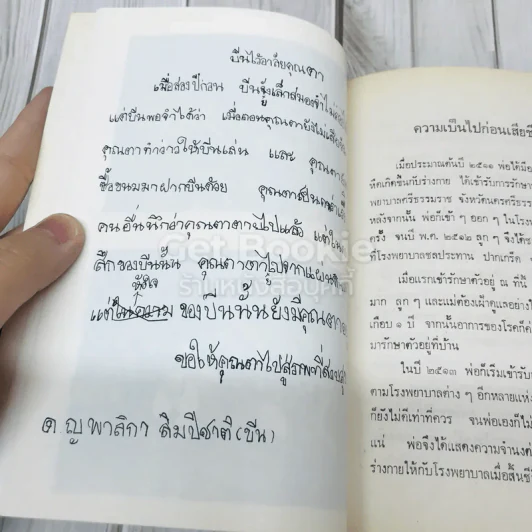 บีนไว้อาลัยคุณตา
เมื่อสองปีก่อน บีนยังเล็กสมองจำไม่
แต่บีนพอจำได้ว่า เมื่อตอนคุณตายังไม่เสีย
คุณตาทำว่าวให้บีนเล่น และ คุณตา
ซื้อขนมมาฝากบีนด้วย คุณตาเป็น
คนอื่นนึกว่าคุณตาตายไปแล้ว แต่ใน
สึกของบีนนั้น คุณตาตายไปจากแผ่น
หัวใจ
แต่ในความของบีนนั้นยังมีคุณตา
ขอให้คุณตาไปสู่ภพที่
ด.ญ พาลิกา ลิมปิชาติ (บีน)
Get Bookie
ร้านหนังสือบุ๊คกี้
ความเป็นไปก่อนเสียชี
เมื่อประมาณต้นปี ๒๕๑๑ พ่อได้มี
ผิดเกิดขึ้นกับร่างกาย ได้เข้ารับการรักษา
พยาบาลศรีธรรมราช จังหวัดนครศรีธรรม
หลังจากนั้น พ่อก็เข้า ๆ ออก ๆ ในโรง
ครั้ง จนปี พ.ศ. ๒๕๑๒ ลูก ๆ จึงให้
ที่โรงพยาบาลชลประทาน ปากเกร็ด
เมื่อแรกเข้ารักษาตัวอยู่ ณ ที่นี้
มาก ลูก ๆ และแม่ต้องเฝ้าดูแลอย่าง
เกือบ ๑ ปี จากนั้นอาการของโรคก็
มารักษาตัวอยู่ที่บ้าน
ในปี ๒๕๑๓ พ่อก็เริ่มเข้ารับ
ตามโรงพยาบาลต่าง ๆ อีกหลายแห่ง
ก็ยังไม่ดีเท่าที่ควร จนพ่อเองก็ไม่
แน่ พ่อจึงได้แสดงความจำนง
ร่างกายให้กับโรงพยาบาลเมื่อสิ้นชี